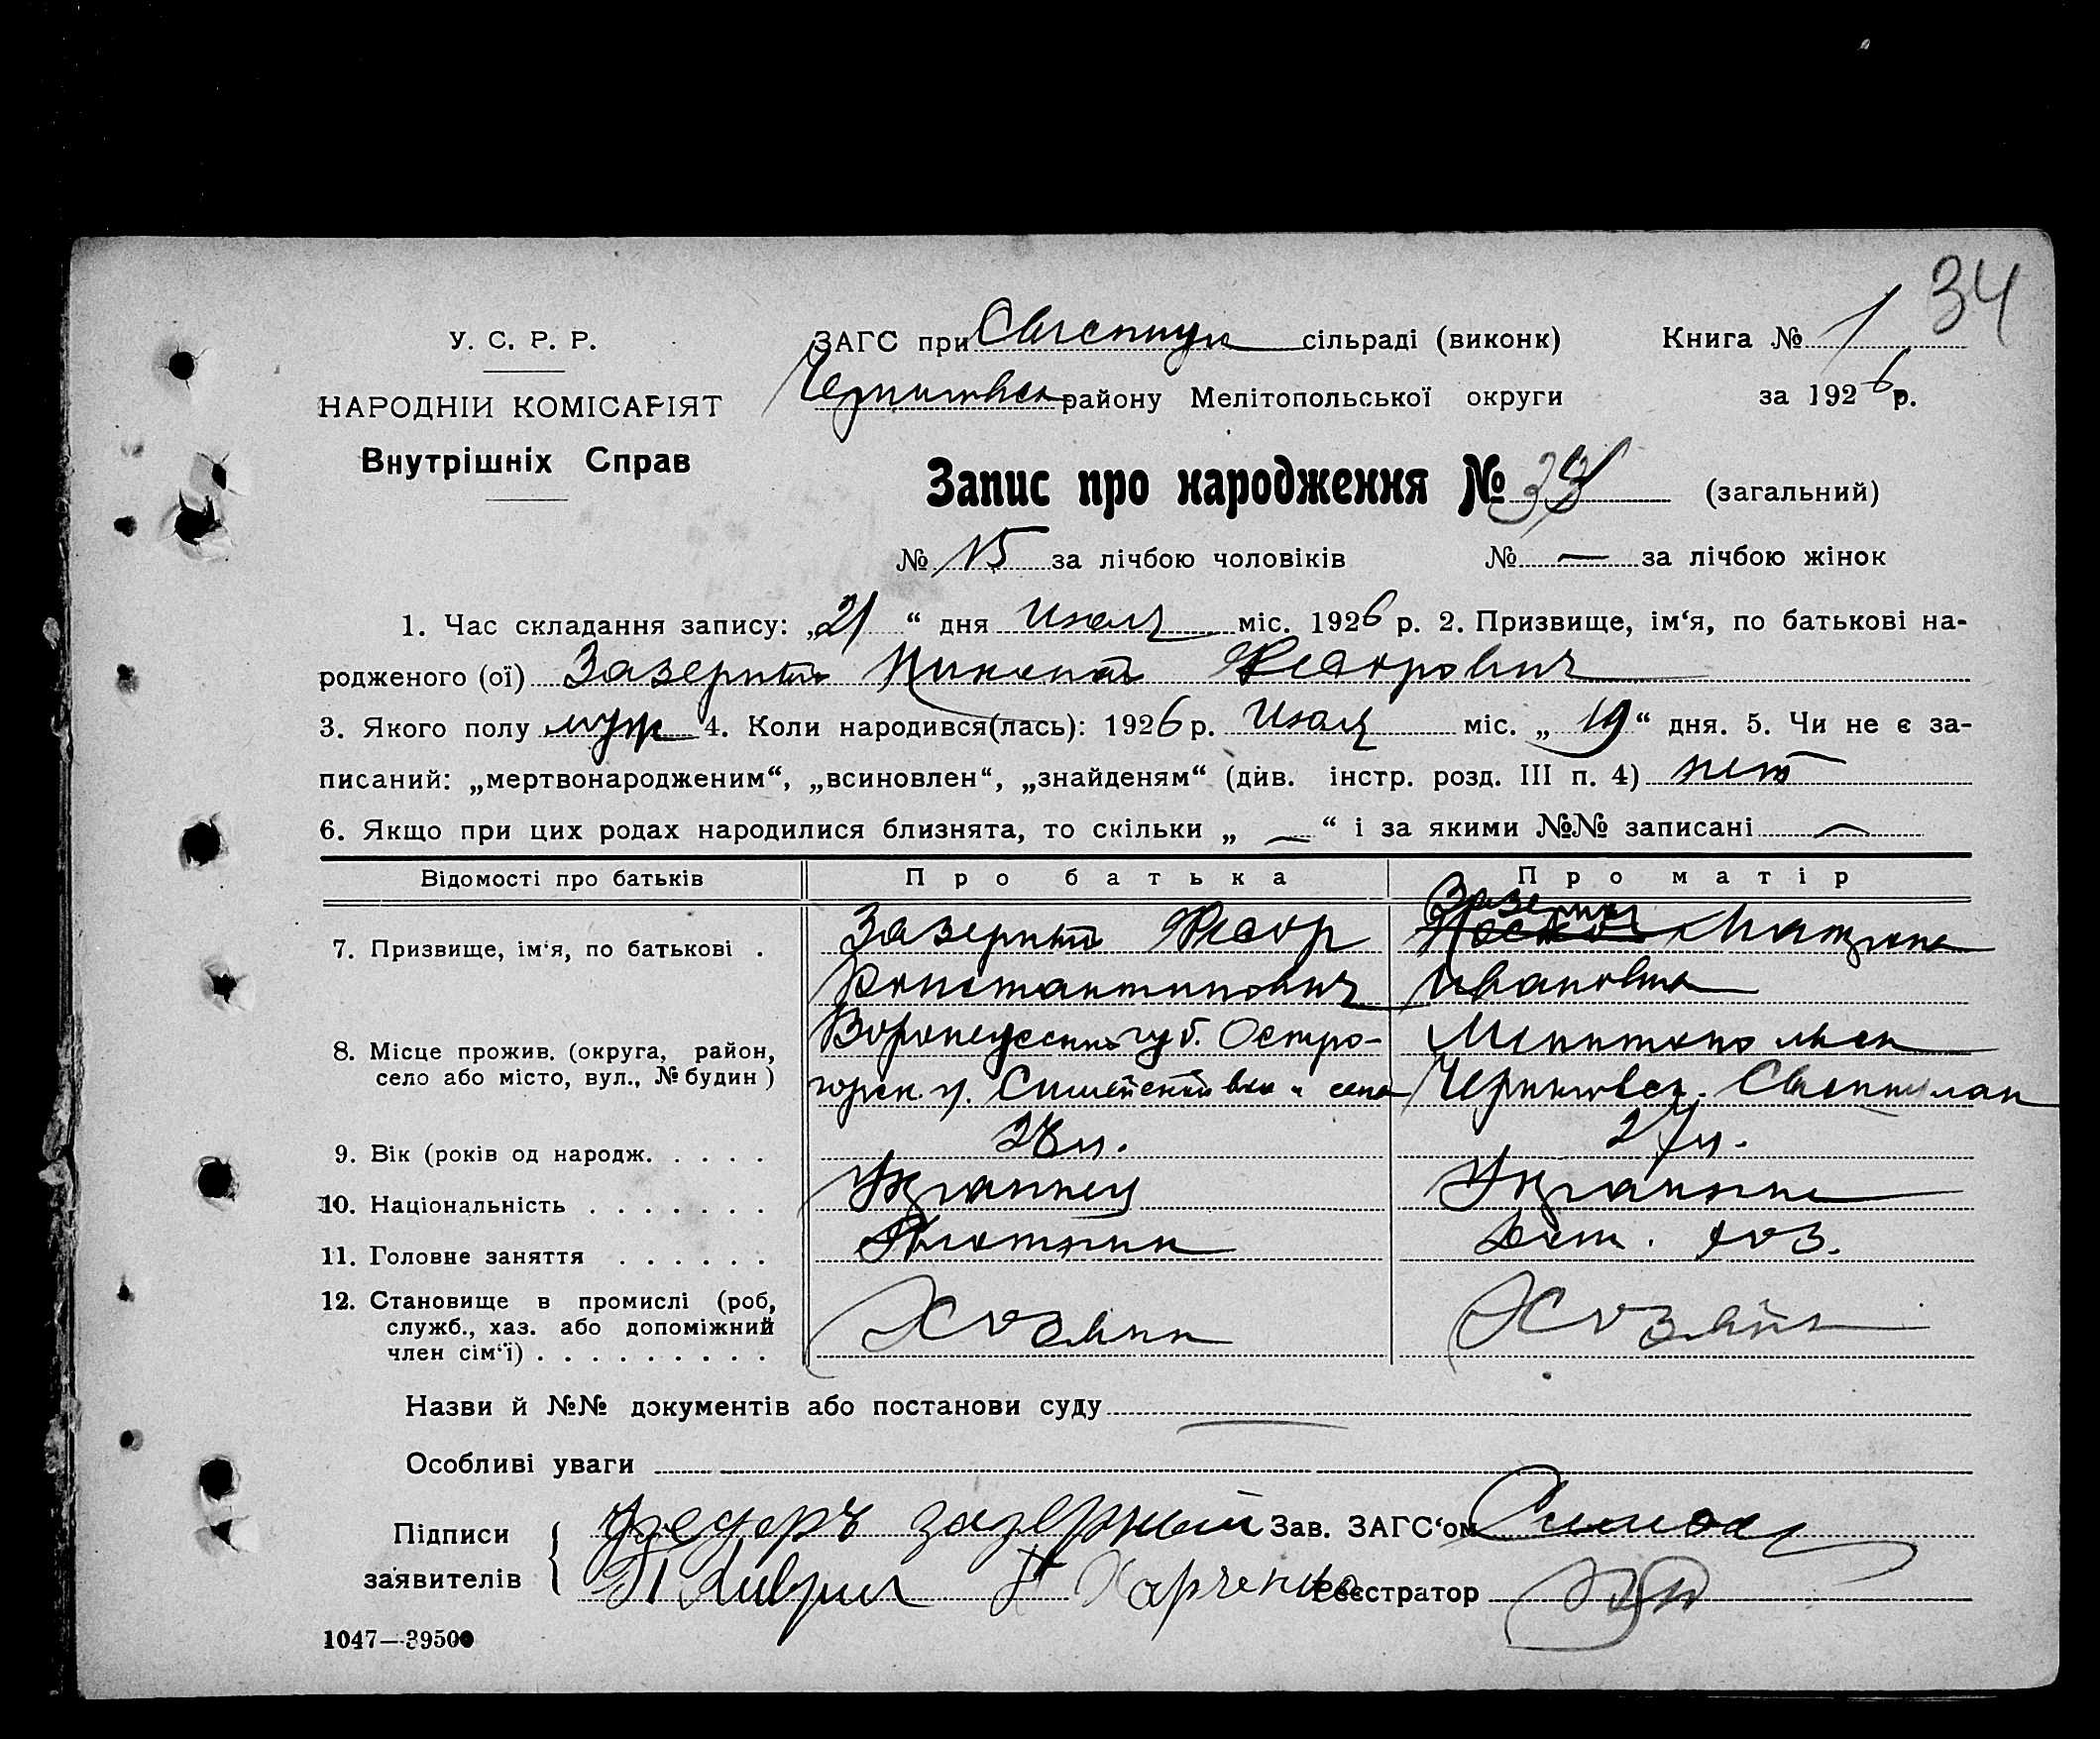 34
У. С. Р. Р.
НАРОДНІЙ КОМІСАРІЯТ
Внутрішніх Справ
ЗАГС при сільраді (виконк) Книга № 1
району Мелітопольської округи за 1926 р.
Запис про народження № (загальний)
№ 15 за лічбою чоловіків № — за лічбою жінок
1. Час складання запису: „21“ дня Июля міс. 1926 р. 2. Призвище, ім‘я, по батькові на-
родженого (ої) Федорович
3. Якого полу муж 4. Коли народився(лась): 1926 р. Июля міс. „19“ дня. 5. Чи не є за-
писаний: „мертвонародженим“, „всиновлен“, „знайденям“ (див. інстр. розд. III п. 4) нет
6. Якщо при цих родах народилися близнята, то скільки „—“ і за якими №№ записані —
Відомості про батьків Про батька Про матір
7. Призвище, ім‘я, по батькові . Федор Матрена
Константинович Ивановна
8. Місце прожив. (округа, район, село або місто, вул., № будин) Воронежской губ. Остро-
горск. у. Мелитопольск
Черниговск.
9. Вік (років од народж. . . . . 27 л.
10. Національність . . . . . . . Украинец Украинка
11. Головне заняття . . . . . . Плотник Дом. хоз.
12. Становище в промислі (роб, служб., хаз. або допоміжний член сім‘ї) . . . . . . . . . Хозяин Хозяйка
Назви й №№ документів або постанови суду
Особливі уваги
Підписи заявителів Федоръ Зазерный Зав. ЗАГС‘ом
Харченко Реєстратор
1047—39500